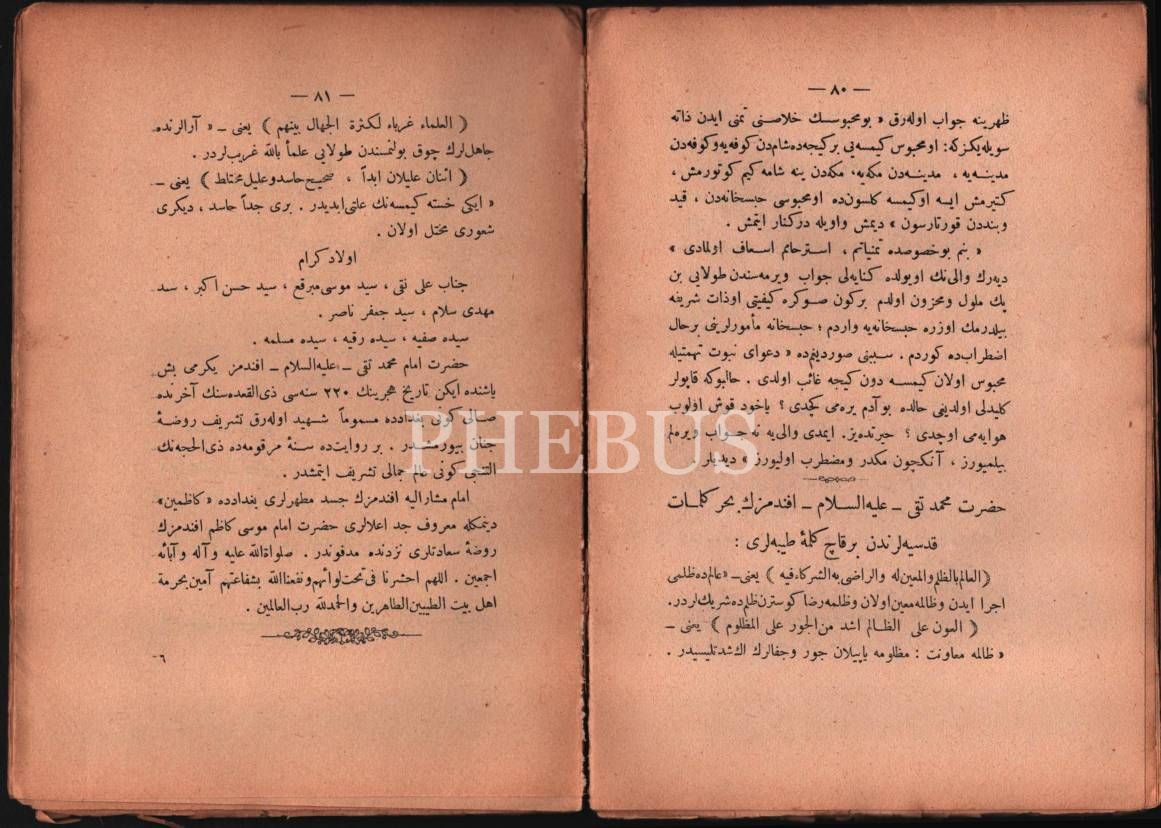 — ٨٠ —
ظهرينه جواب اوله‌رق « بومحبوسك خلاصنى تمنى ايدن ذاته
سويله‌يكزكه : اومحبوس كيمسه‌يى بركيجه‌ده شام‌دن كوفه‌يه وكوفه‌دن
مدينه‌يه ، مدينه‌دن مكه‌يه، مكه‌دن ينه شامه كيم كوتورمش ،
كتيرمش ايسه اوكيمسه كلسون‌ده اومحبوسى حبسخانه‌دن ، قيد
وبنددن قورتارسون » ديمش واويله دركنار ايتمش .
« بنم بوخصوصده تمنياتم ، استرحاتم اسعاف اولمادى »
ديه‌رك والى‌نك اويولده كنايه‌لى جواب ويرمه‌سندن طولايى بن
پك ملول ومحزون اولدم بركون صوكره كيفيتى اوذات شريفه
بيلدرمك اوزره حبسخانه‌يه واردم ؛ حبسخانه مأمورلرينى برحال
اضطراب‌ده كوردم . سببنى صوردينم‌ده « دعواى نبوت تهمتيله
محبوس اولان كيمسه دون كيجه غائب اولدى . حالبوكه قاپولر
كليدلى اولديغى حالده بوآدم يره‌مى كچدى ؟ ياخود قوش اولوب
هوايه‌مى اوچدى ؟ حيرتده‌يز. ايمدى والى‌يه نه جواب ويره‌لم
بيلميورز ، آنكچون مكدر ومضطرب اوليورز » ديديلر .
حضرت محمد تقى ـ عليه السلام ـ افندمزك بحر كلمات
قدسيه‌لرندن برقاچ كلمهٔ طيبه‌لرى :
( العالم بالظلم والمعين له والراضى به الشركاء فيه ) يعنى ـ « عالم‌ده ظلمى
اجرا ايدن وظالمه معين اولان وظلمه رضا كوسترن ظلم‌ده شريك لردر.
( العون على الظالم اشد من الجور على المظلوم ) يعنى ـ
« ظالمه معاونت : مظلومه ياپيلان جور وجفالرك اك شدتليسيدر .
— ٨١ —
( العلماء غرباء لكثرة الجهال بينهم ) يعنى ـ « آرالرنده
جاهل‌لرك چوق بولنمسندن طولايى علمأ بالله غريب لردر .
( اثنان عليلان ابداً ، صحيح حاسد وعليل مختلط ) يعنى ـ
« ايكى خسته كيمسه‌نك علتى ابديدر . برى جداً حاسد ، ديكرى
شعورى مختل اولان .
اولاد كرام
جناب على نقى ، سيد موسى مبرقع ، سيد حسن اكبر ، سيد
مهدى سلام ، سيد جعفر ناصر .
سيده صفيه ، سيده رقيه ، سيده مسلمه .
حضرت امام محمد تقى ـ عليه السلام ـ افندمز يكرمى بش
ياشنده ايكن تاريخ هجرينك ٢٢٠ سنه‌سى ذى القعده‌سنك آخرنده
صالى كونى بغدادده مسموماً شهيد اوله‌رق تشريف روضهٔ
جنان بيورمشدر . بر روايت‌ده سنهٔ مرقومه‌ده ذى الحجه‌نك
التنجى كونى عالم جمالى تشريف ايتمشدر .
امام مشار اليه افندمزك جسد مطهرلرى بغدادده « كاظمين »
ديمكله معروف جد اعلالرى حضرت امام موسى كاظم افندمزك
روضهٔ سعادتلرى نزدنده مدفوندر . صلواة الله عليه وآله وآبائه
اجمعين . اللهم احشرنا فى تحت لوائهم ونفعنا الله بشفاعتهم آمين بحرمة
اهل بيت الطيبين الطاهرين والحمدلله رب العالمين .
ـ٦
PHEBUS